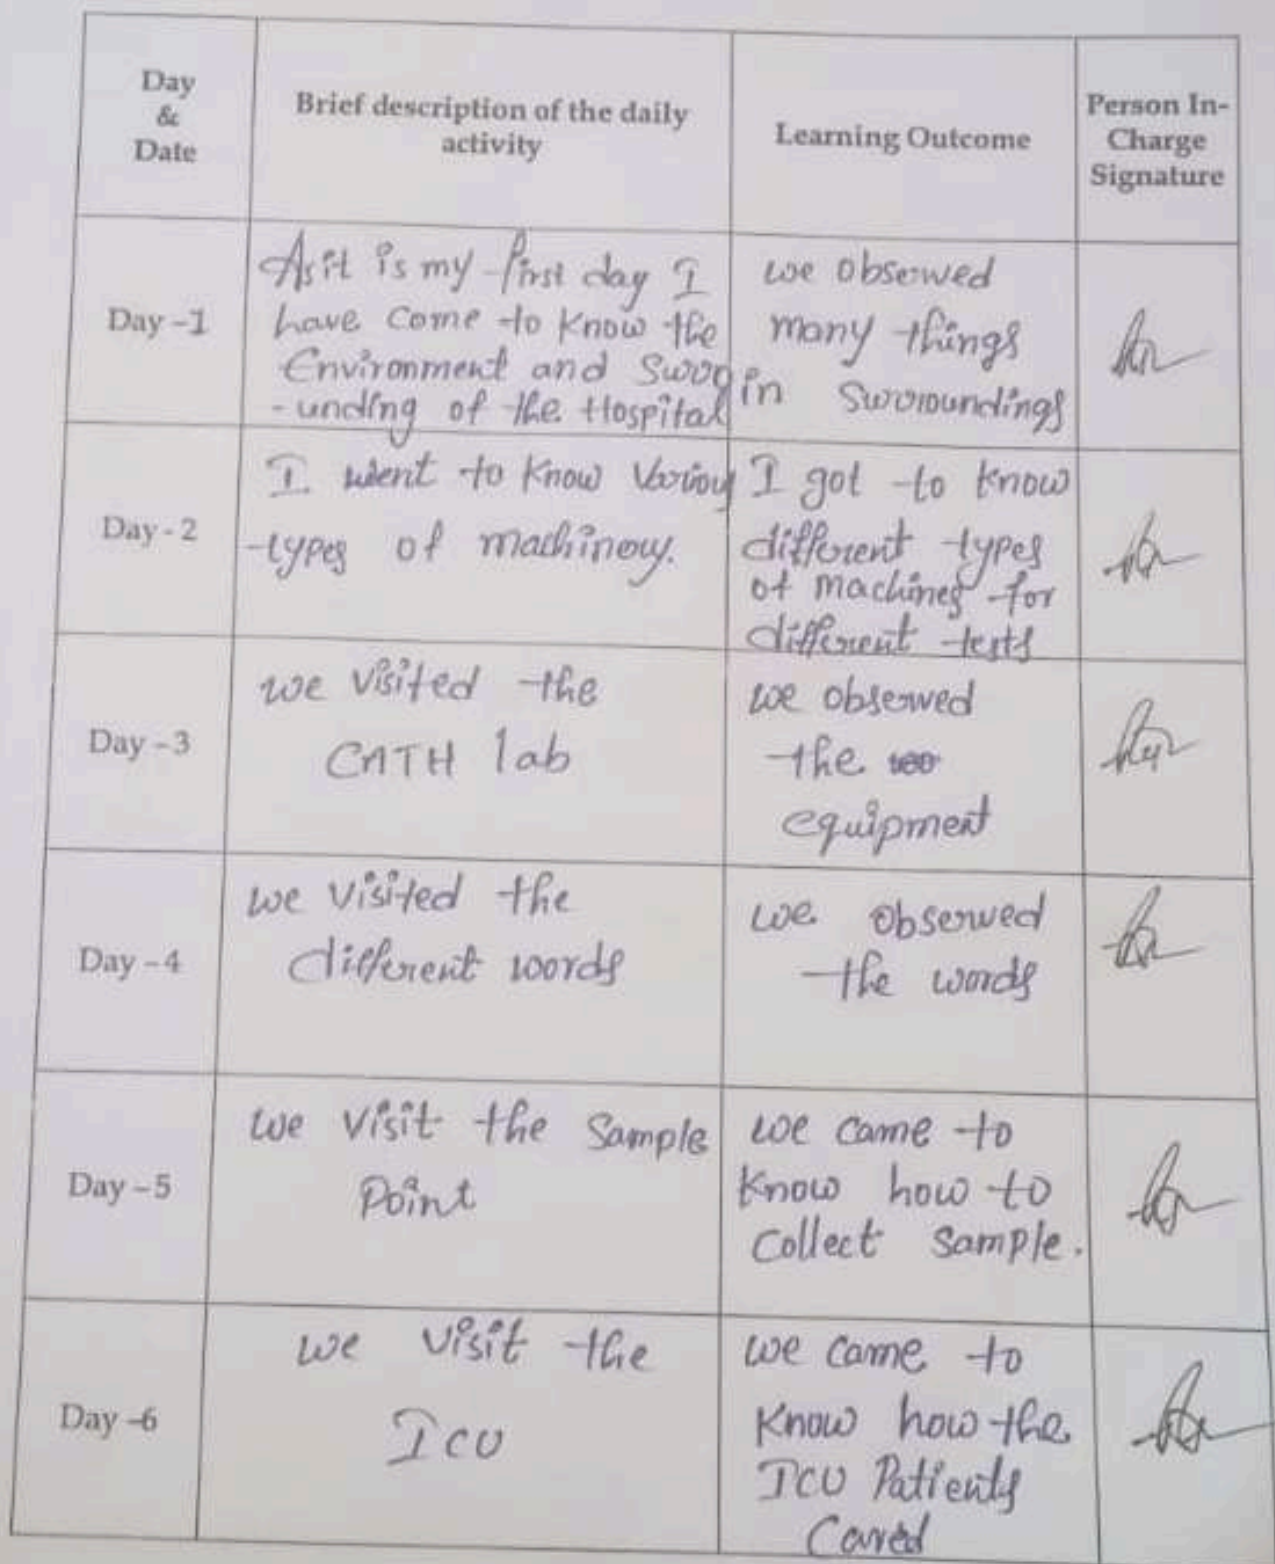 Day
&
Date
Brief description of the daily
activity
Learning Outcome
Person In-
Charge
Signature
Day -1
As it is my first day I
have come to know the
Environment and Surro
-unding of the Hospital
we observed
many things
in surroundings
Day - 2
I went to know Various
types of machinery.
I got to know
different types
of machines for
different tests
Day -3
we visited the
CATH lab
we observed
the
equipment
Day -4
we visited the
different words
we observed
the words
Day -5
we visit the Sample
Point
we came to
Know how to
Collect sample.
Day -6
we visit the
ICU
we came to
Know how the
ICU Patients
Cared